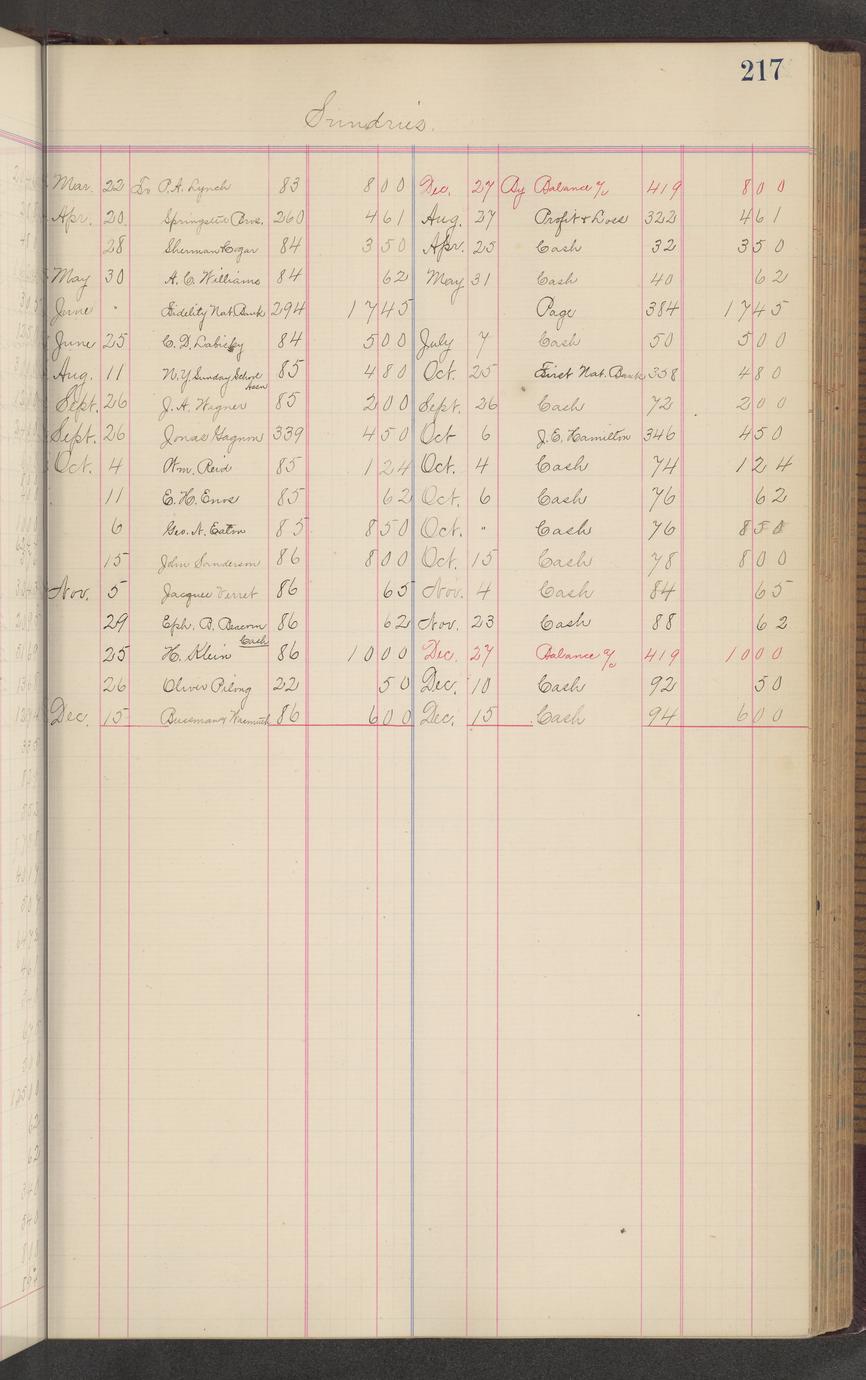 217
Sundries.
Mar. 22 To P.A. Lynch 83 8 00 Dec. 27 By Balance a/c 419 8 00
Apr. 20 Springstead Bros. 260 4 61 Aug. 27 Profit & Loss 322 4 61
28 Sherman Cogar 84 3 50 Apr. 25 Cash 32 3 50
May 30 A. C. Williams 84 62 May 31 Cash 40 62
June " Fidelity Nat. Bank 294 17 45 Page 384 17 45
June 25 C. D. 84 5 00 July 7 Cash 50 5 00
Aug. 11 N.Y. Sunday School Assn 85 4 80 Oct. 25 First Nat. Bank 358 4 80
Sept. 26 J. A. Wagner 85 2 00 Sept. 26 Cash 72 2 00
Sept. 26 Jonas Gagnon 339 4 50 Oct 6 J. E. Hamilton 346 4 50
Oct. 4 Wm. Reid 85 1 24 Oct. 4 Cash 74 1 24
11 E. H. Enos 85 62 Oct. 6 Cash 76 62
6 Geo. N. Eaton 85 8 50 Oct. " Cash 76 8 50
15 John Sanderson 86 8 00 Oct. 15 Cash 78 8 00
Nov. 5 Jacques Verret 86 65 Nov. 4 Cash 84 65
29 Eph. B. 86 62 Nov. 23 Cash 88 62
25 H. Klein Cash 86 10 00 Dec. 27 Balance a/c 419 10 00
26 Oliver Pilong 22 50 Dec. 10 Cash 92 50
Dec. 15 86 6 00 Dec. 15 Cash 94 6 00